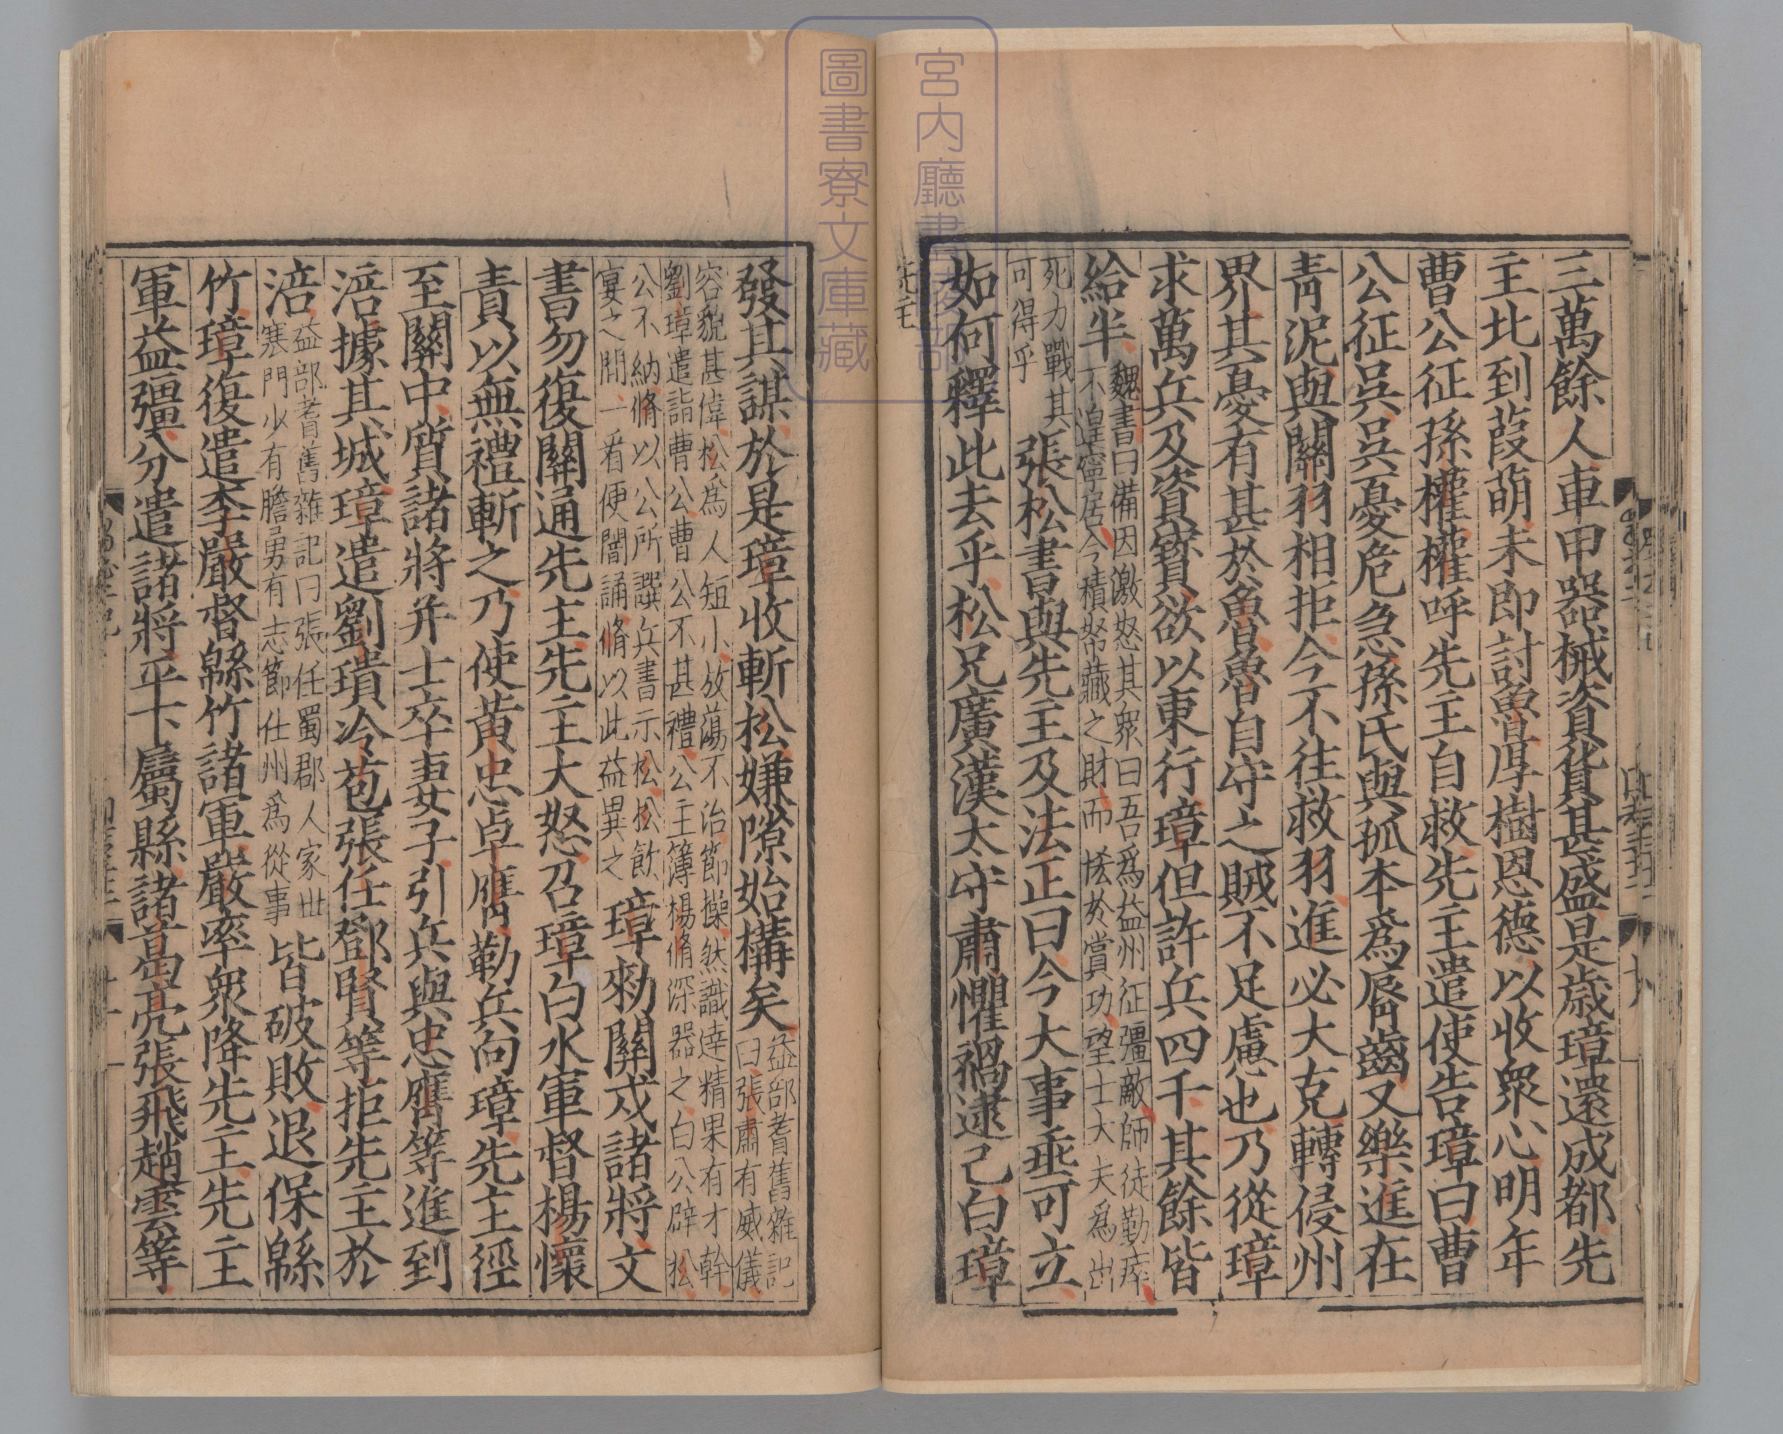 三萬餘人車甲器械資貨甚盛是歲璋還成都先
主北到葭萌未即討魯厚樹恩德以收衆心明年
曹公征孫權權呼先主自救先主遣使告璋曰曹
公征吳吳憂危急孫氏與孤本爲脣齒又樂進在
青泥與關羽相拒今不往救羽進必大克轉侵州
界其憂有甚於魯魯自守之賊不足慮也乃從璋
求萬兵及資寳欲以東行璋但許兵四千其餘皆
給半
魏書曰備因激怒其衆曰吾爲益州征彊敵師徒勤瘁
不遑寧居今積帑藏之財而恡於賞功望士大夫爲出
死力戰其
可得乎
張松書與先主及法正曰今大事垂可立
如何釋此去乎松兄廣漢太守肅懼禍逮己白璋
先主
發其謀於是璋收斬松嫌隙始構矣
益部耆舊雜記
曰張肅有威儀
容貌甚偉松爲人短小放蕩不治節操然識達精果有才幹
劉璋遣詣曹公曹公不甚禮公主簿楊脩深器之白公辟松
公不納脩以公所譔兵書示松松飲
宴之間一看便闇誦脩以此益異之
璋勑關戍諸將文
書勿復關通先主先主大怒召璋白水軍督楊懷
責以無禮斬之乃使黃忠卓膺勒兵向璋先主徑
至關中質諸將并士卒妻子引兵與忠膺等進到
涪據其城璋遣劉璝冷苞張任鄧賢等拒先主於
涪
益部耆舊雜記曰張任蜀郡人家世
寒門少有膽勇有志節仕州爲從事
皆破敗退保緜
竹璋復遣李嚴督緜竹諸軍嚴率衆降先主先主
軍益彊分遣諸將平下屬縣諸葛亮張飛趙雲等
宮内廳書陵部
圖書寮文庫藏